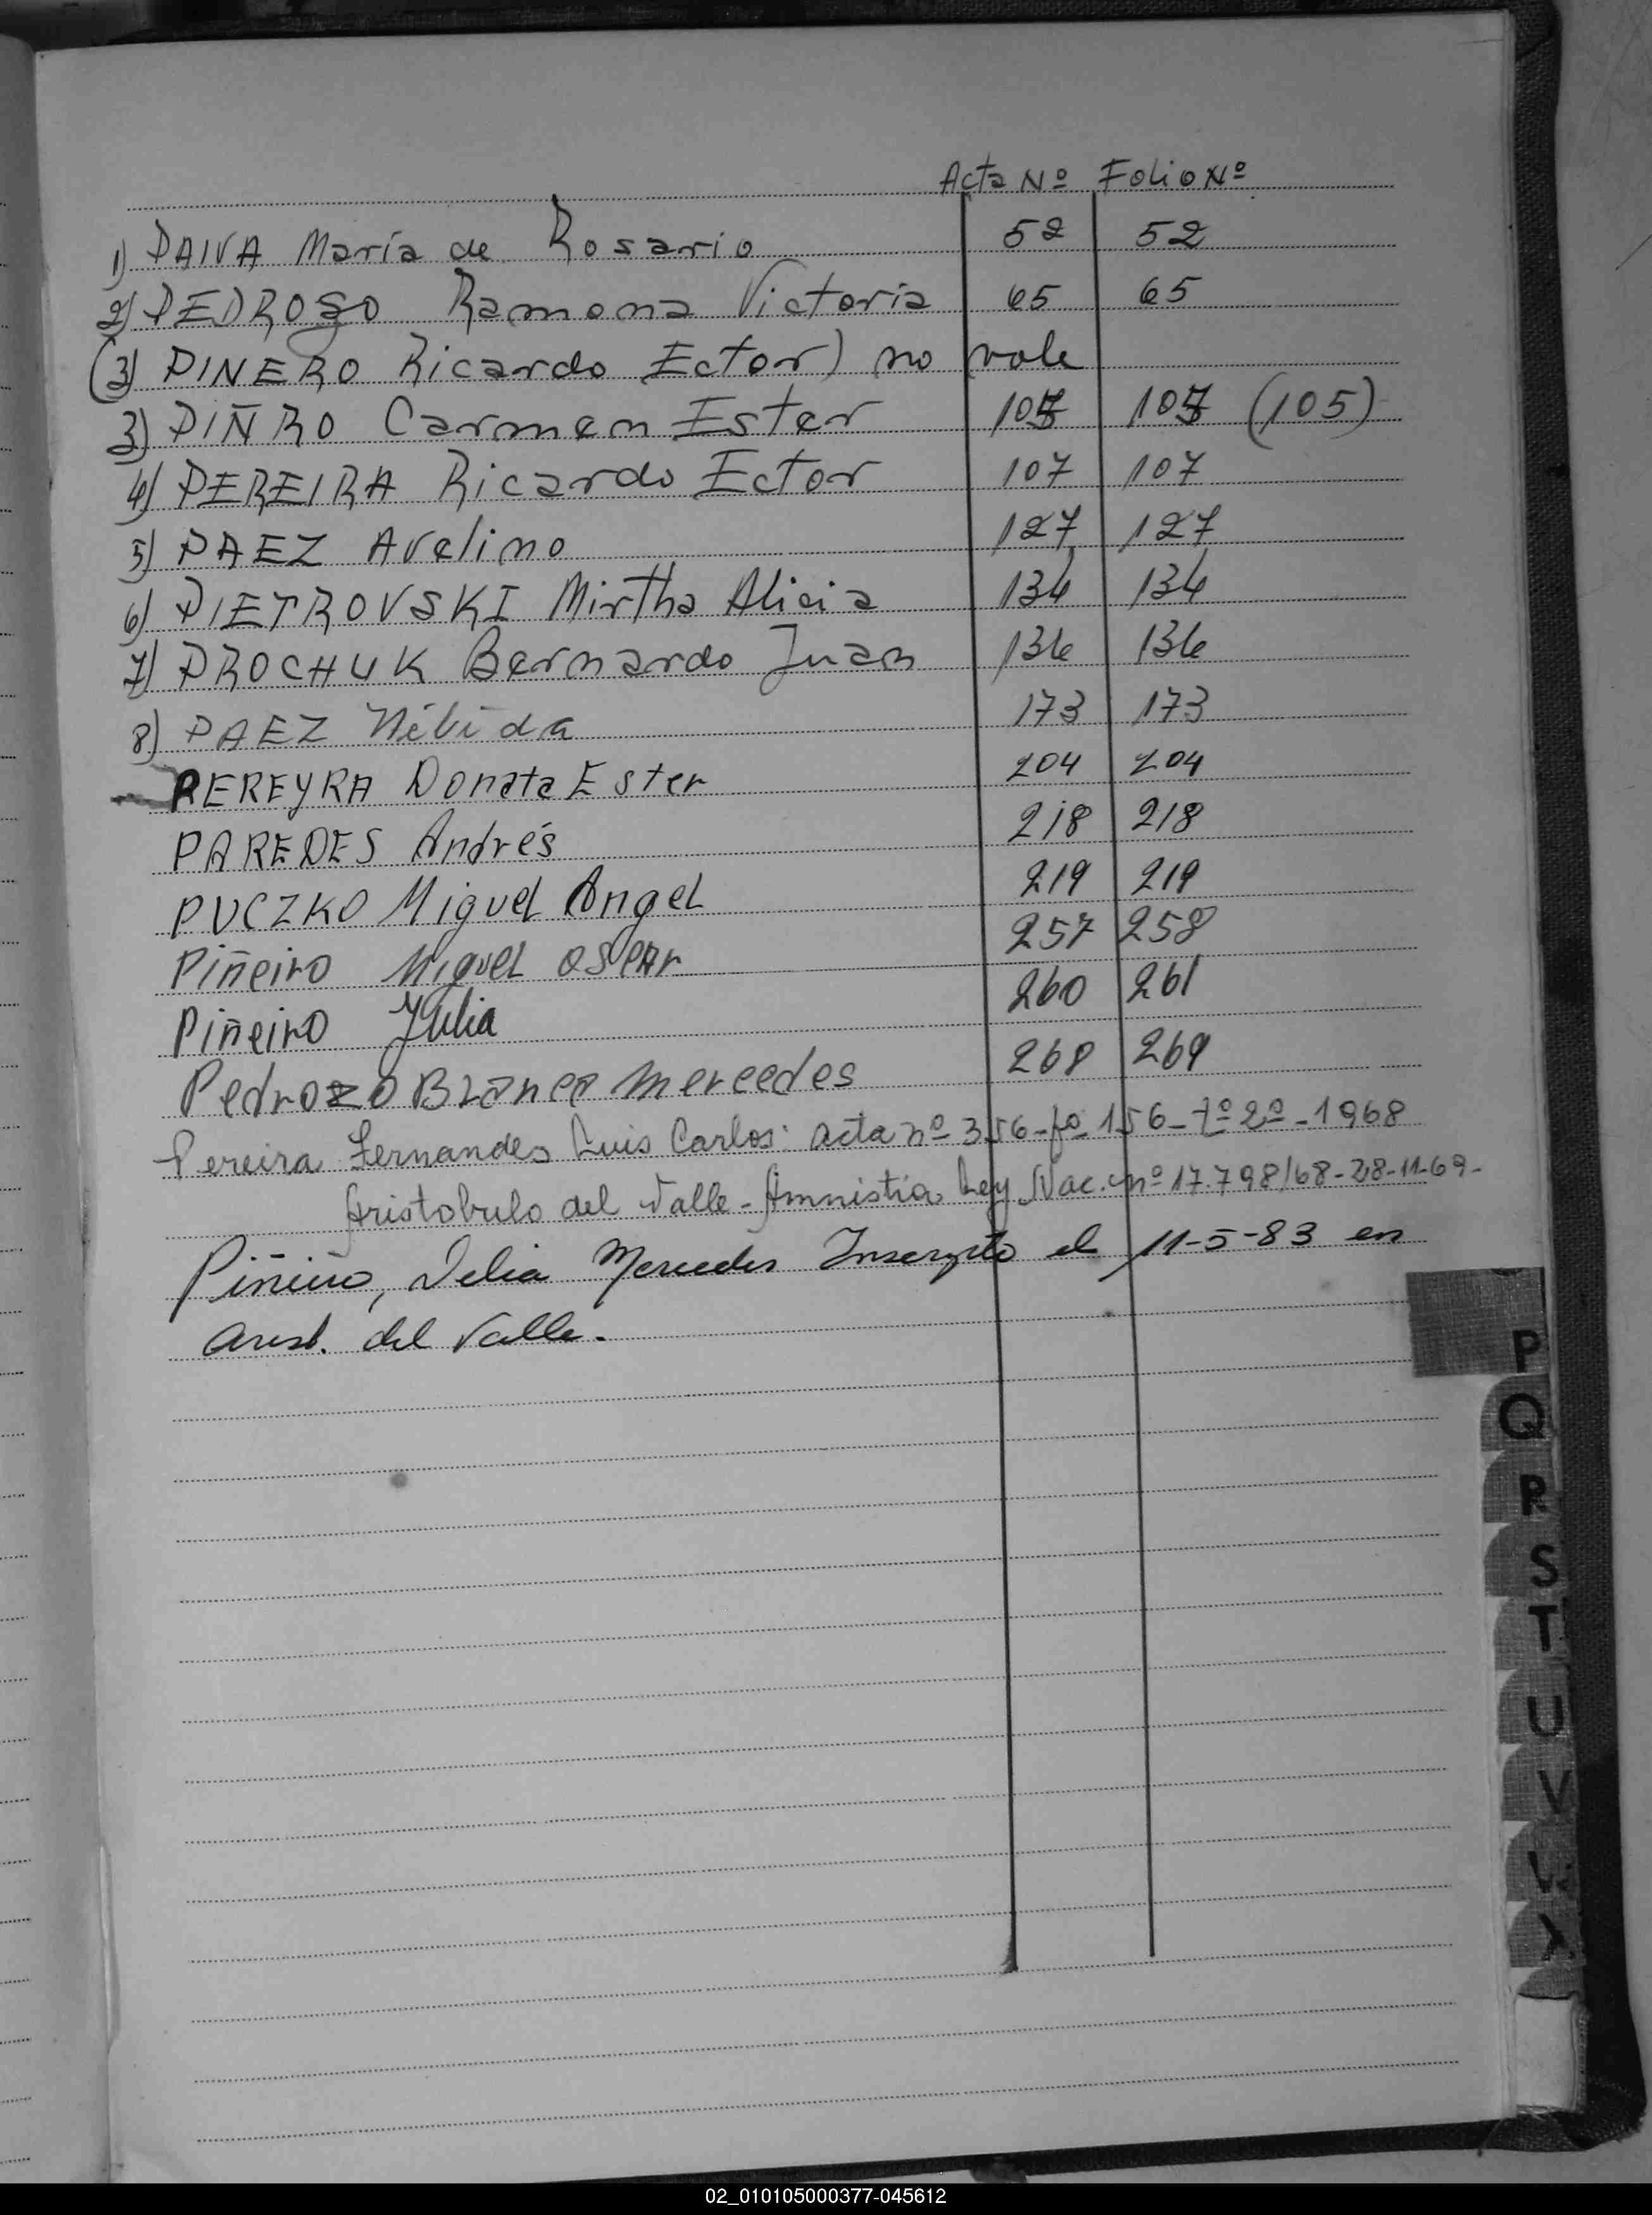 Acta Nº Folio Nº
1) PAIVA María de Rosario 52 52
2) PEDROZO Ramona Victoria 65 65
(3) PINERO Ricardo Ector) no vale
3) PIÑRO Carmen Ester 105 105 (105)
4) PEREIRA Ricardo Ector 107 107
5) PAEZ Avelino 127 127
6) PIETROVSKI Mirtha Alicia 134 134
7) PROCHUK Bernardo Juan 136 136
8) PAEZ Nélida 173 173
PEREYRA Donata Ester 204 204
PAREDES Andrés 218 218
PUCZKO Miguel Angel 219 219
Piñeiro Miguel OSCAr 257 258
Piñeiro Julia 260 261
Pedrozo Blanca Mercedes 268 269
Pereira Fernandes Luis Carlos: acta nº 356-fº 156-tº 2º-1968
Aristobulo del Valle-Amnistia Ley Nac. nº 17.798/68-28-11-69-
Piñeiro, Delia Mercedes Inscripto el 11-5-83 en
Arist. del Valle.
P
Q
R
S
T
U
V
X
02_010105000377-045612